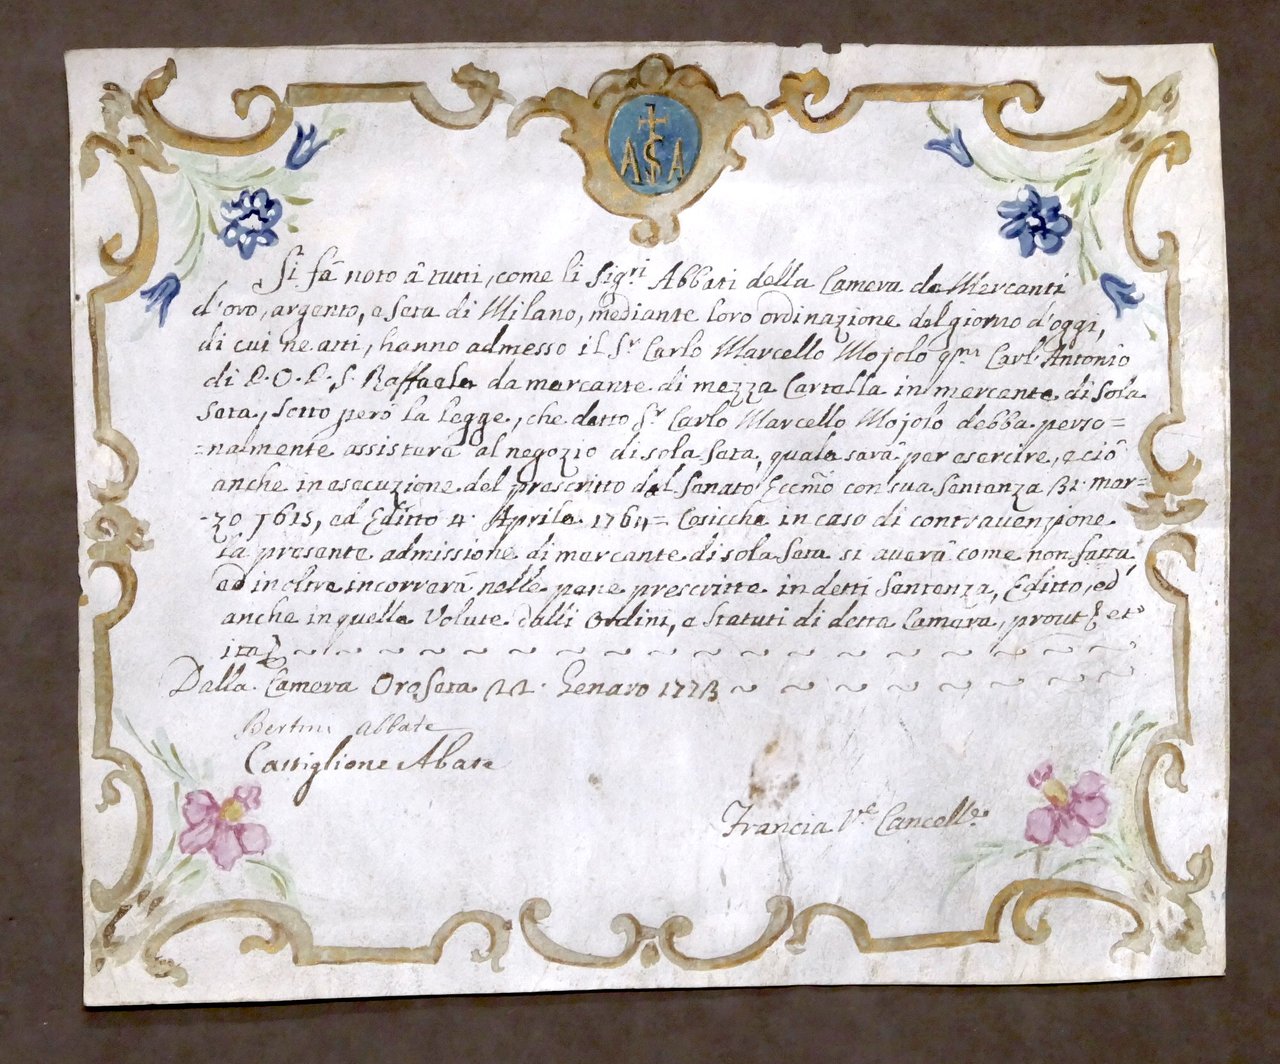 ASA
Si fà noto à tutti, come li Sigri Abbati della Camera de Mercanti
d'oro, argento, e seta di Milano, mediante loro ordinazione del giorno d'oggi,
di cui ne atti, hanno admesso il Sr Carlo Marcello Mojolo qm Carl'Antonio
di P. O. P. S. Raffaele da mercante di mezza Cartella in mercante di sola
Seta, sotto però la legge, che detto Sr Carlo Marcello Mojolo debba perso=
=nalmente assisterà al negozio di sola Seta, quale sarà per esercire, e ciò
anche in esecuzione del prescritto dal Senato Eccmo con sua Sentenza 31 mar=
=zo 1615, ed Editto 4 Aprile 1764= Cosicche in caso di contravenzione
la presente admissione di mercante di sola Seta si averà come non fatta,
ed inoltre incorrerà nelle pene prescritte in detti Sentenza, Editto, ed
anche in quelle Volute dalli Ordini, e Statuti di detta Camera, prout et
ita
Dalla Camera Oro Seta 22 Genaro 1773
Bertini Abbate
Castiglione Abate
Francia Ve Cancelle